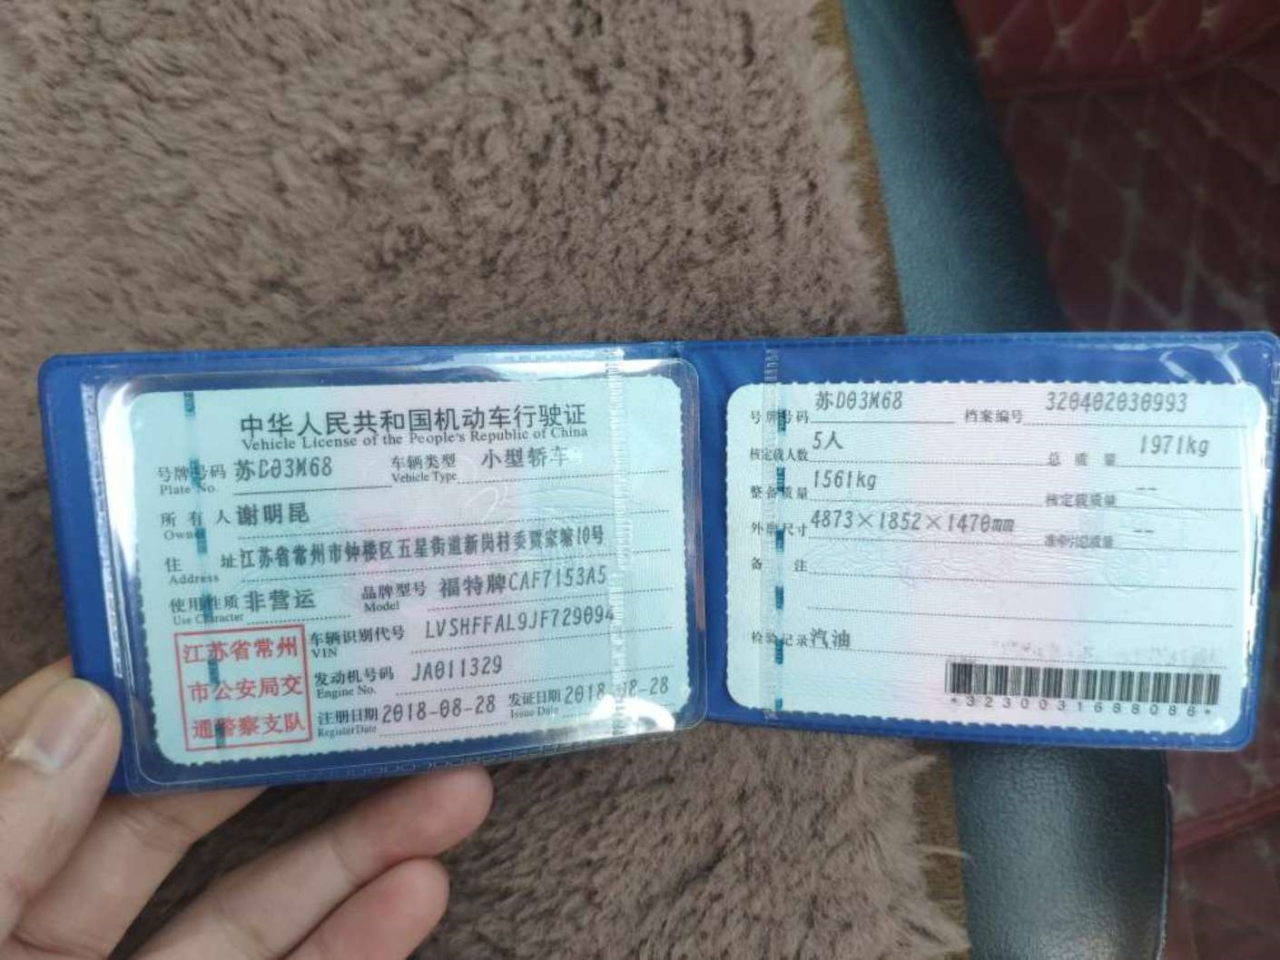 中华人民共和国机动车行驶证
Vehicle License of the People's Republic of China
号牌号码 苏D03M68 车辆类型 小型轿车
Plate No. Vehicle Type
所有人 谢明昆
Owner
住址 江苏省常州市钟楼区五星街道新岗村委贾家塘10号
Address
使用性质 非营运 品牌型号 福特牌CAF7153A5
Use Character Model
车辆识别代号 LVSHFFAL9JF729094
VIN
发动机号码 JA011329
Engine No.
注册日期 2018-08-28 发证日期 2018-08-28
Register Date Issue Date
江苏省常州
市公安局交
通警察支队
号牌号码 苏D03M68 档案编号 320402030993
核定载人数 5人 总质量 1971kg
整备质量 1561kg 核定载质量 --
外廓尺寸 4873×1852×1470mm 准牵引总质量 --
备注
检验记录 汽油
*3230031688086*